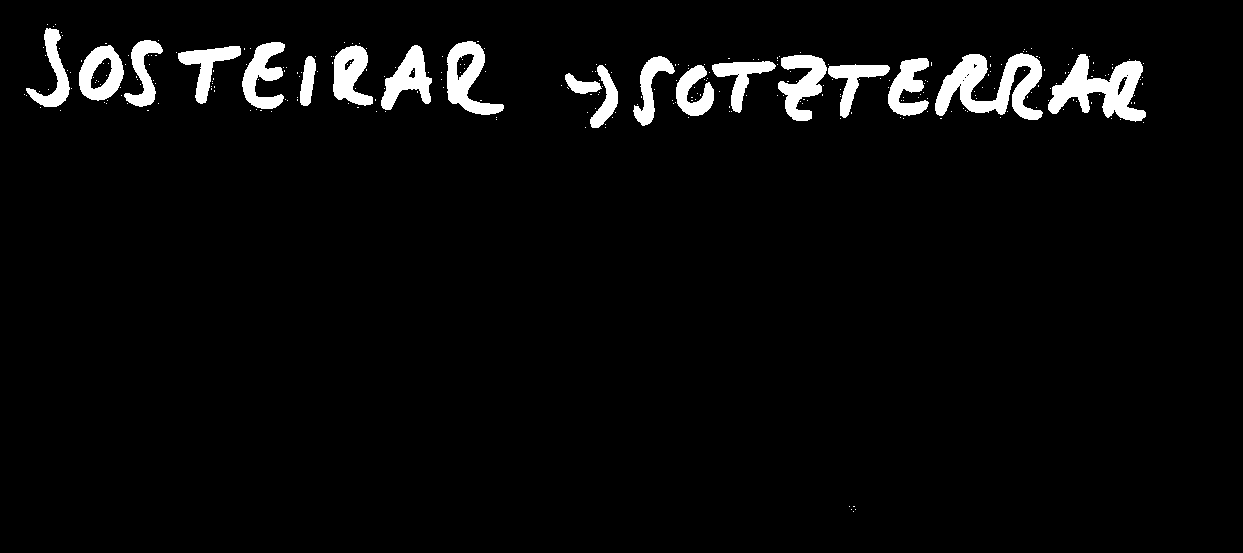 SOSTEIRAR → SOTZTERRAR